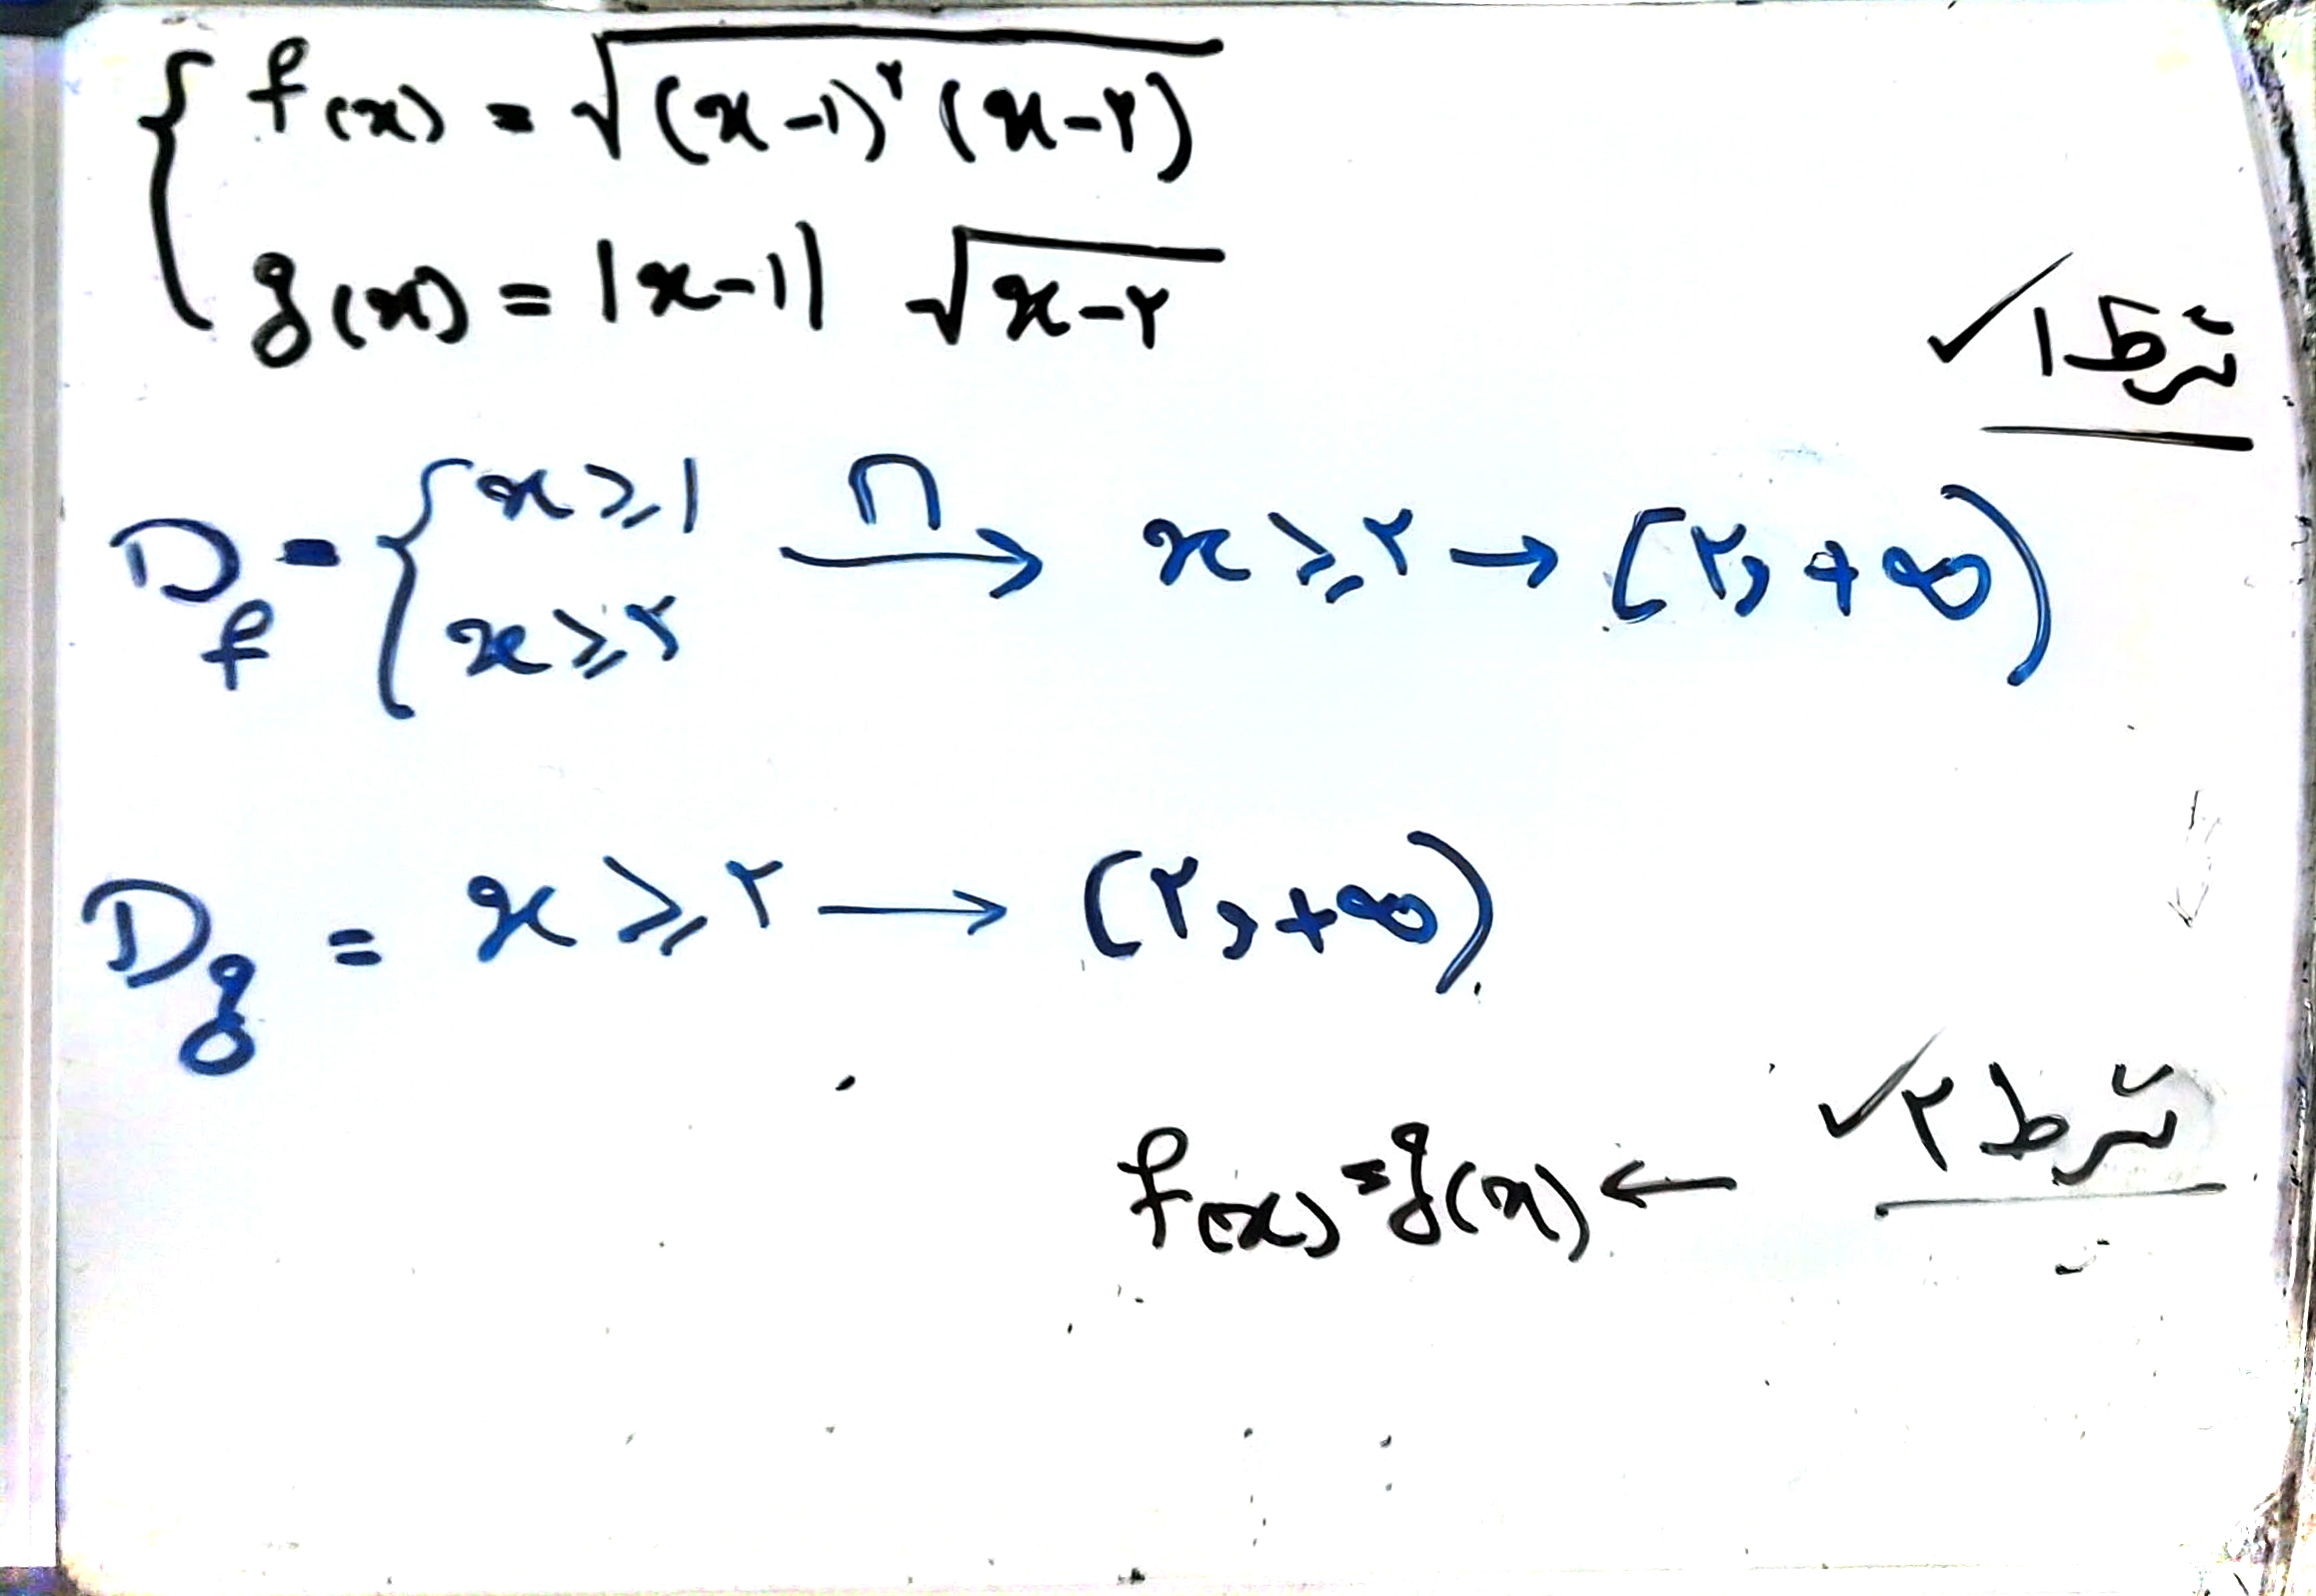 f(x) = √((x-۱)^۲ (x-۲))
g(x) = |x-۱| √(x-۲)
شرط ۱ ✓
D_f = { x ≥ ۱ , x ≥ ۲ ∩→ x ≥ ۲ → [۲, +∞)
D_g = x ≥ ۲ → [۲, +∞)
شرط ۲ ✓ ← f(x) = g(x)